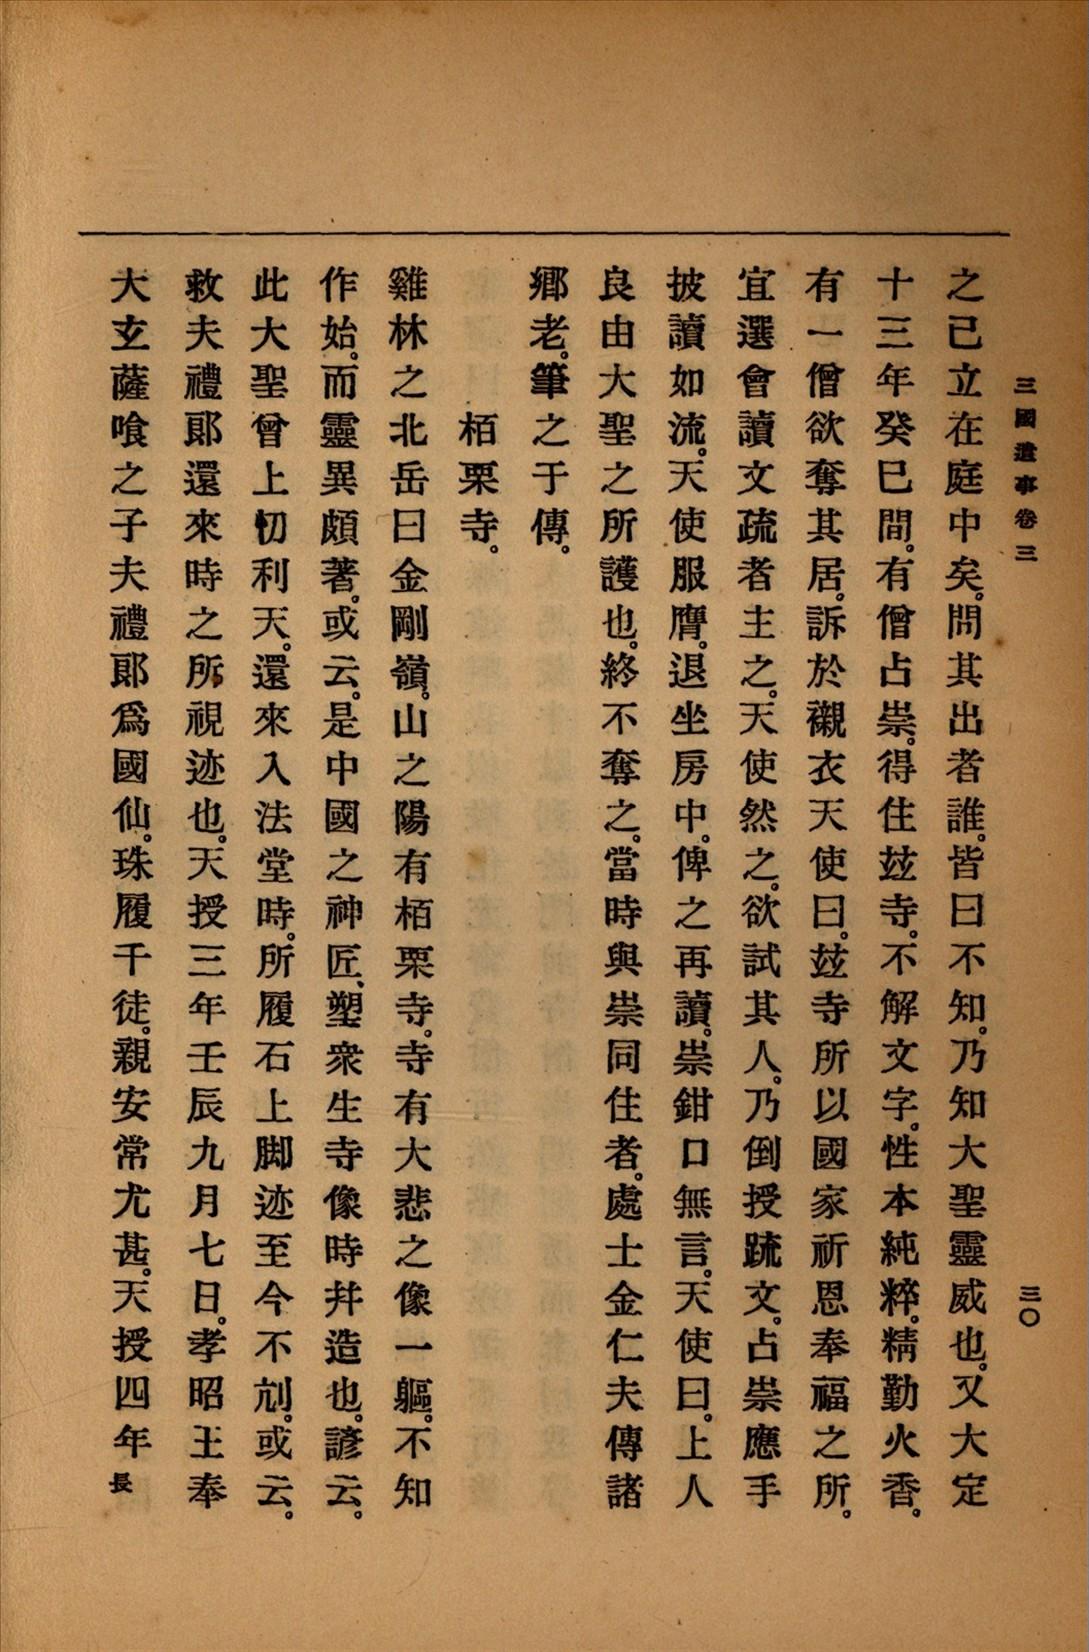 三國遺事卷三
三〇
之已立在庭中矣。問其出者誰。皆曰不知。乃知大聖靈威也。又大定
十三年癸巳間。有僧占崇。得住玆寺。不解文字。性本純粹。精勤火香。
有一僧欲奪其居。訴於襯衣天使曰。玆寺所以國家祈恩奉福之所。
宜選會讀文疏者主之。天使然之。欲試其人。乃倒授䟽文。占崇應手
披讀如流。天使服膺。退坐房中。俾之再讀。崇鉗口無言。天使曰。上人
良由大聖之所護也。終不奪之。當時與崇同住者。處士金仁夫傳諸
鄕老。筆之于傳。
栢栗寺。
雞林之北岳曰金剛嶺。山之陽有栢栗寺。寺有大悲之像一軀。不知
作始。而靈異頗著。或云。是中國之神匠、塑衆生寺像時幷造也。諺云。
此大聖曾上忉利天。還來入法堂時。所履石上脚迹至今不刓。或云。
救夫禮郞還來時之所視迹也。天授三年壬辰九月七日。孝昭王奉
大玄薩喰之子夫禮郞爲國仙。珠履千徒。親安常尤甚。天授四年長